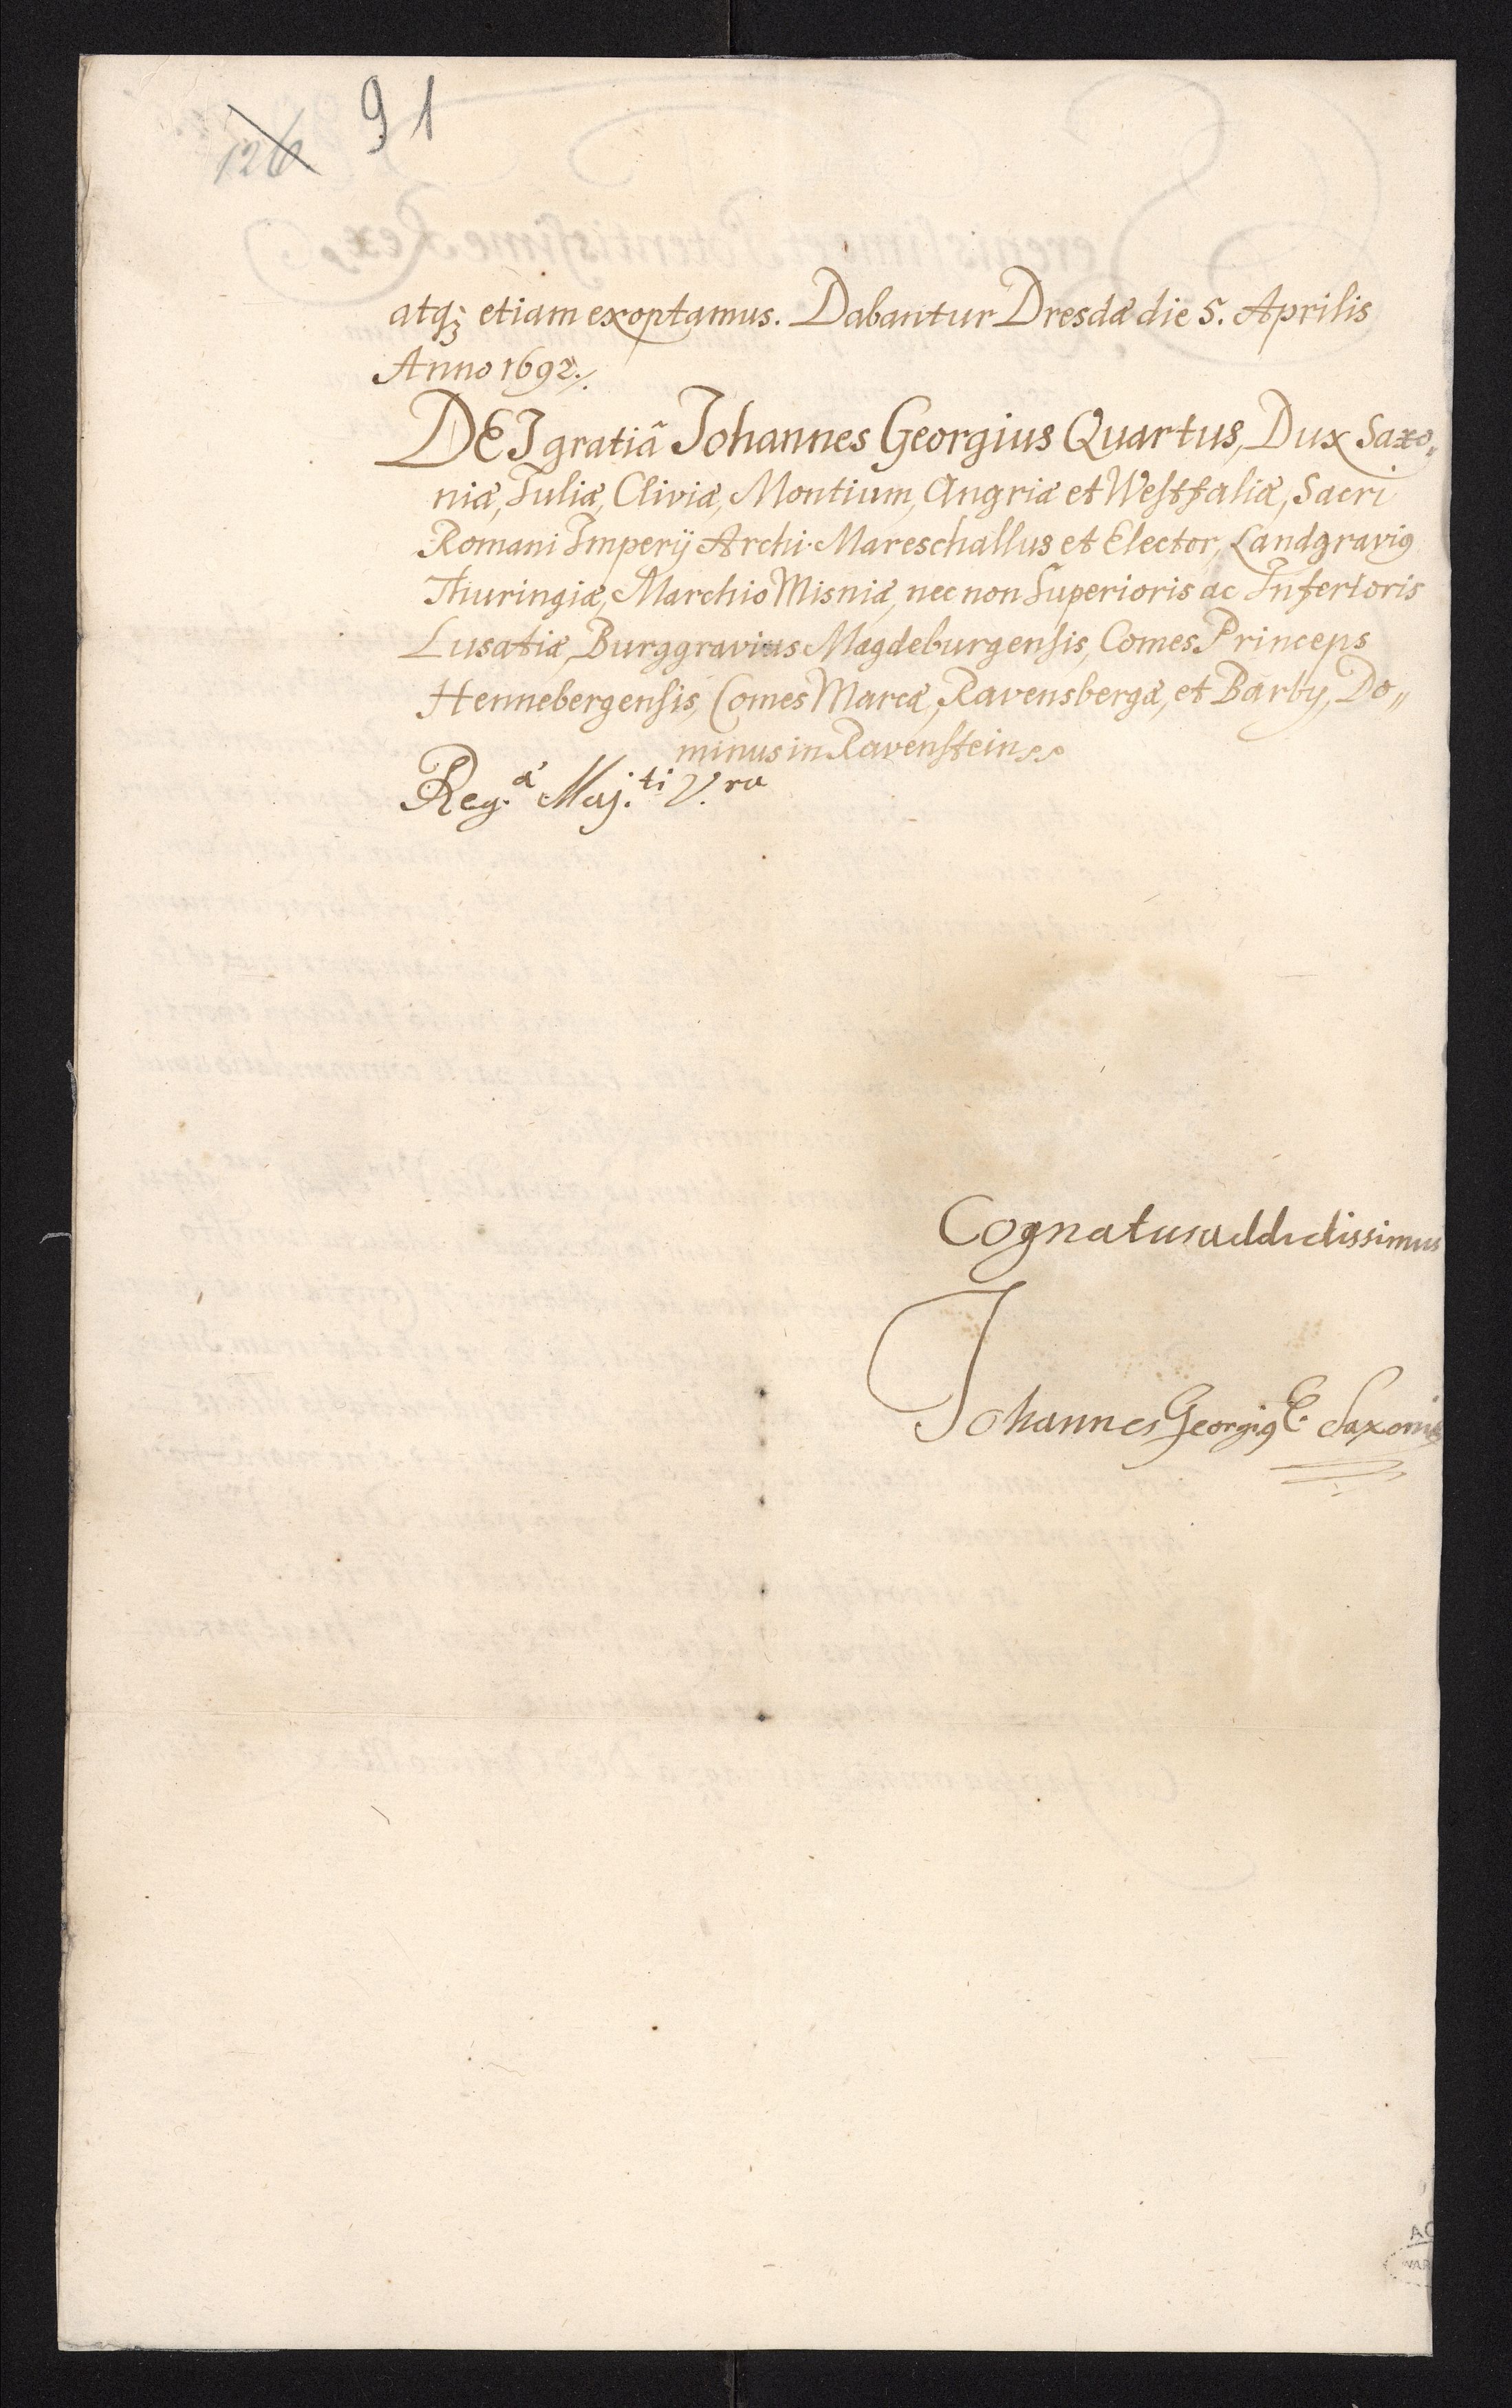 91
126
atq; etiam exoptamus. Dabantur Dresdæ die 5. Aprilis
Anno 1692./.
DEI gratiâ Johannes Georgius Quartus, Dux Saxo„
niæ, Juliæ, Cliviæ, Montium, Angriæ et Westfaliæ, Sacri
Romani Imperij Archi-Mareschallus et Elector, Landgravig
Thuringiæ, Marchio Misniæ, nec non Superioris ac Inferioris
Lusatiæ, Burggravius Magdeburgensis, Comes Princeps
Hennebergensis, Comes Marcæ, Ravensbergæ, et Barby, Do„
minus in Ravenstein
Reg.æ Maj.ti V.ra
Cognatus addictissimus
Johannes Georgig E. Saxoniæ